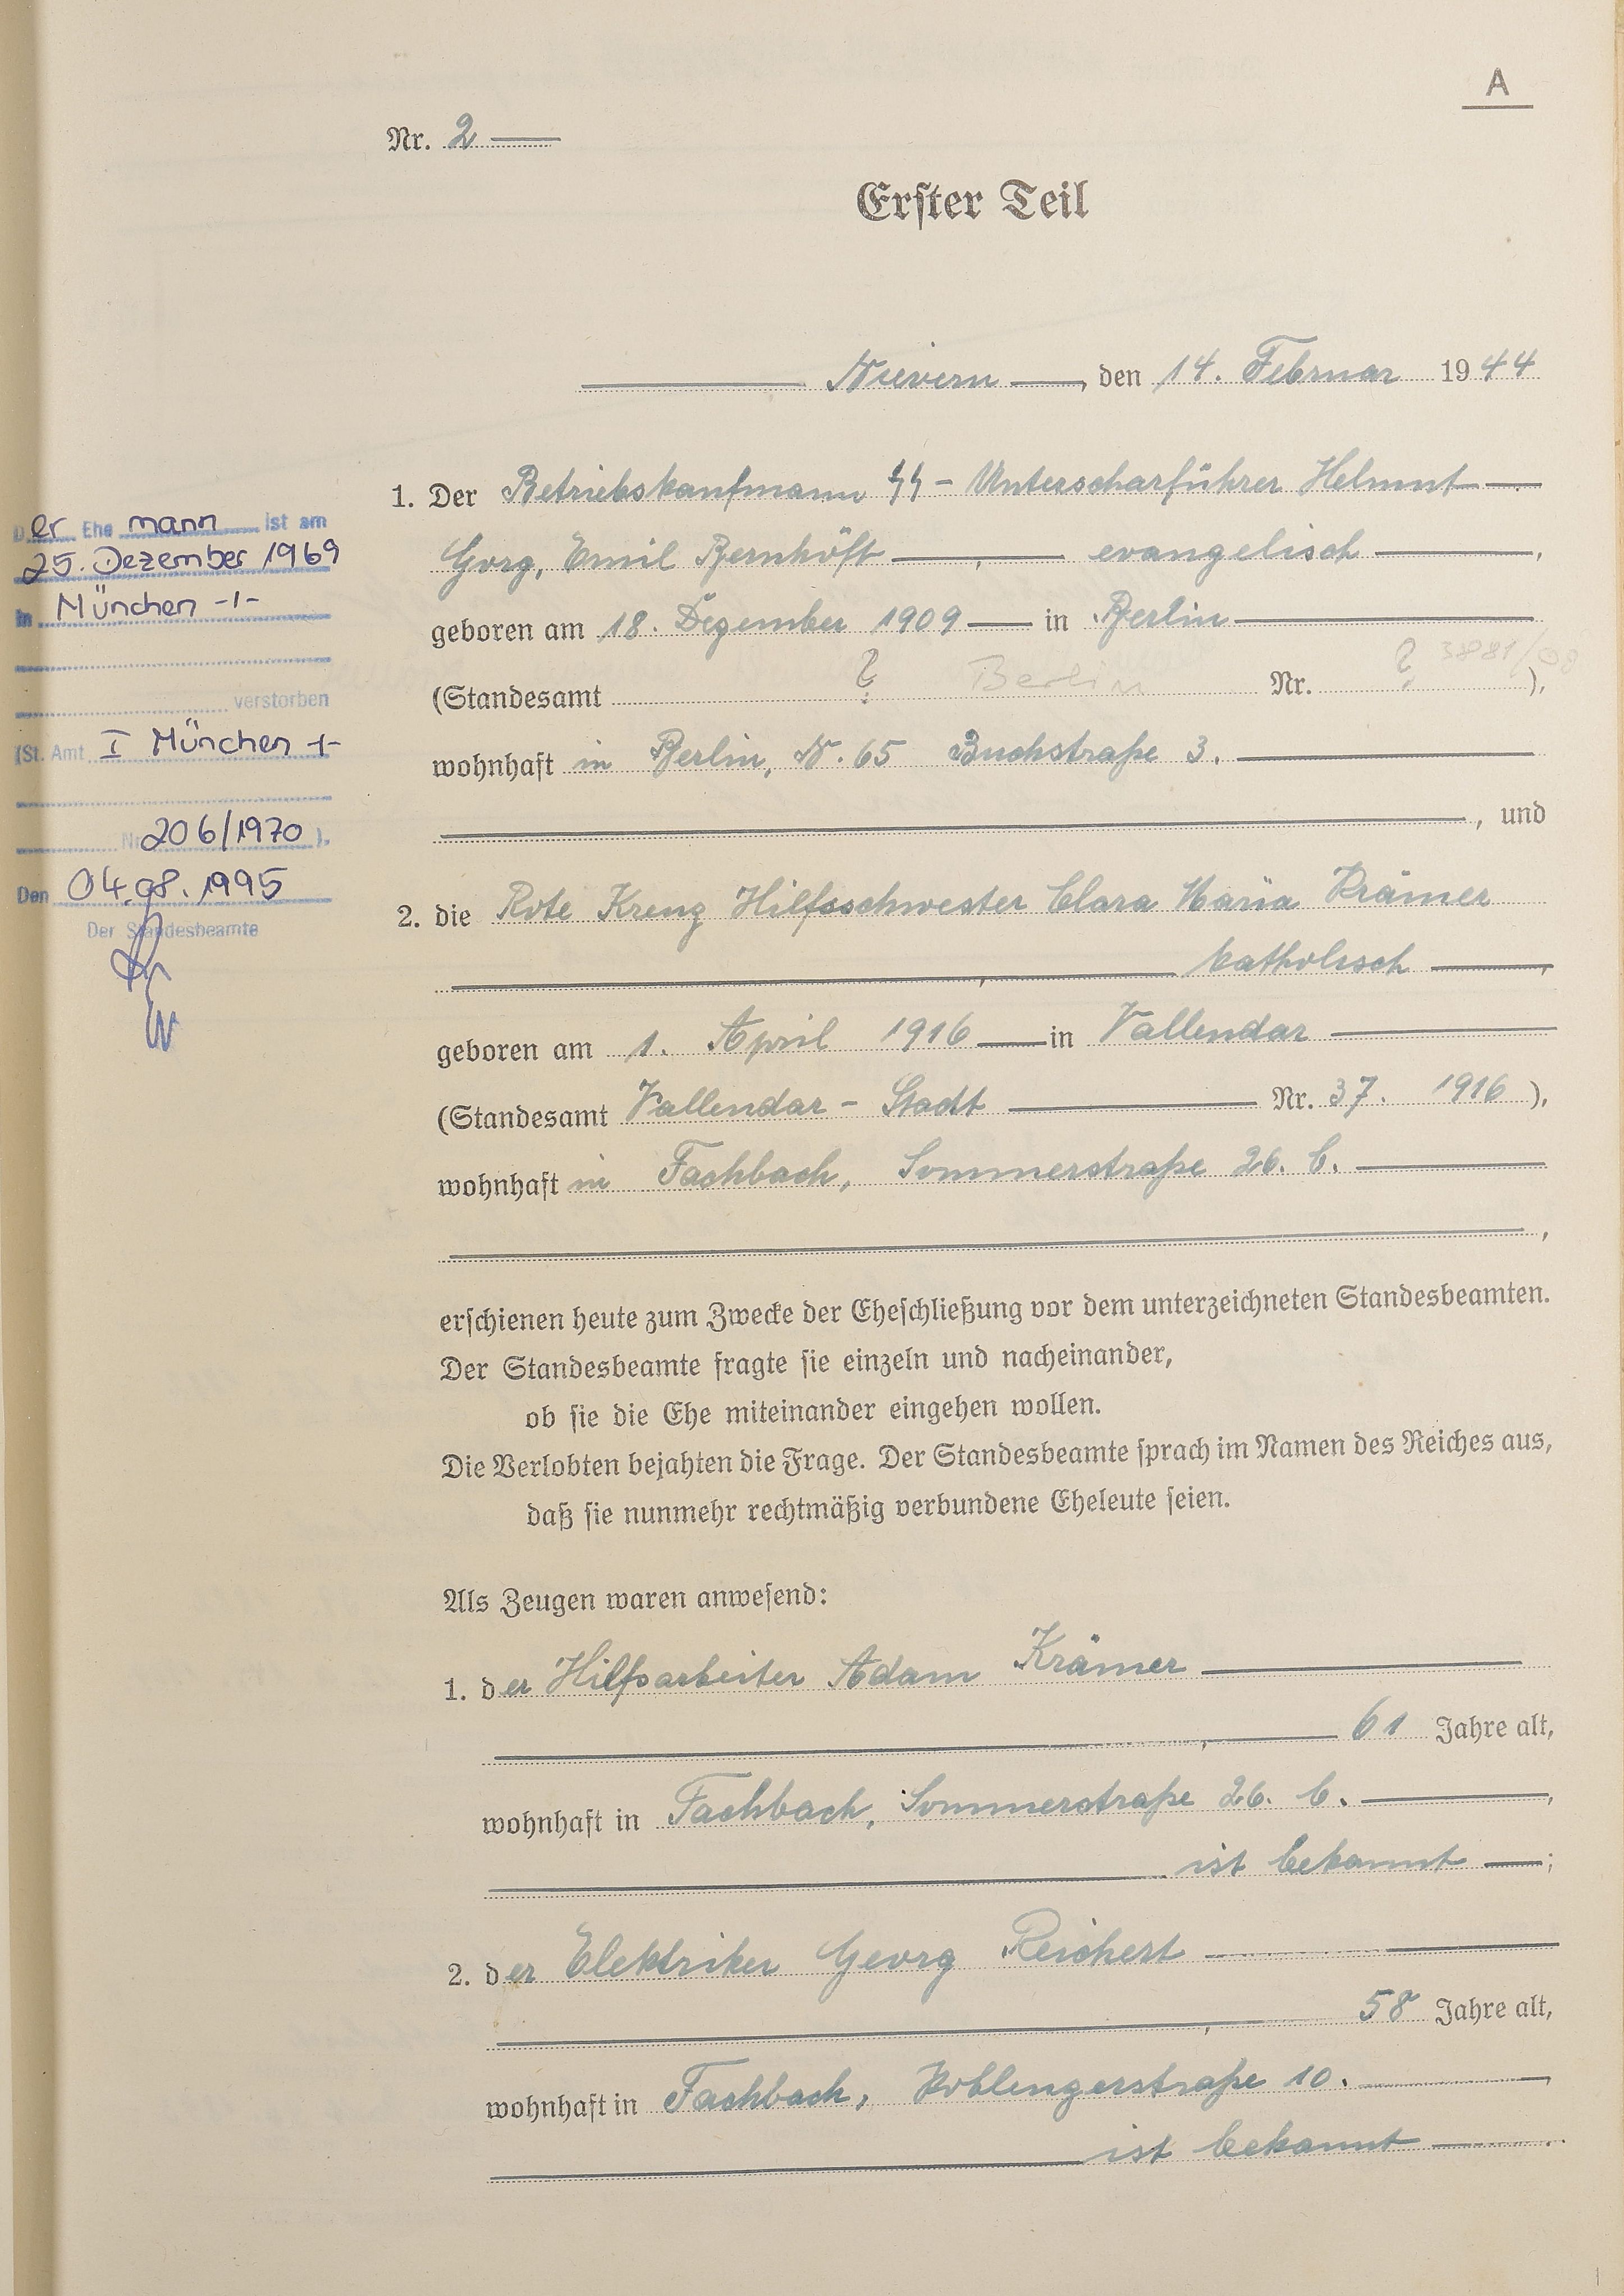 A
Nr. 2
Erster Teil
Nievern, den 14. Februar 1944
1. Der Betriebskaufmann SS-Unterscharführer Helmut
Gorg, Emil Bernhöft, evangelisch,
geboren am 18. Dezember 1909 in Berlin
(Standesamt ? Berlin Nr. ? 3881/08),
wohnhaft in Berlin, N. 65 Buchstraße 3.
, und
2. die Rote Kreuz Hilfsschwester Clara Maria Krämer
, katholisch,
geboren am 1. April 1916 in Vallendar
(Standesamt Vallendar - Stadt Nr. 37. 1916),
wohnhaft in Fachbach, Sommerstraße 26. b.
,
erschienen heute zum Zwecke der Eheschließung vor dem unterzeichneten Standesbeamten.
Der Standesbeamte fragte sie einzeln und nacheinander,
ob sie die Ehe miteinander eingehen wollen.
Die Verlobten bejahten die Frage. Der Standesbeamte sprach im Namen des Reiches aus,
daß sie nunmehr rechtmäßig verbundene Eheleute seien.
Als Zeugen waren anwesend:
1. der Hilfsarbeiter Adam Krämer
, 61 Jahre alt,
wohnhaft in Fachbach, Sommerstraße 26. b.,
ist bekannt;
2. der Elektriker Georg Reichert
, 58 Jahre alt,
wohnhaft in Fachbach, Koblenzerstraße 10.
ist bekannt.
Der Ehemann ist am
25. Dezember 1969
in München -/-
verstorben
(St. Amt I München -/-
Nr. 206/1970).
Den 04.08.1995
Der Standesbeamte